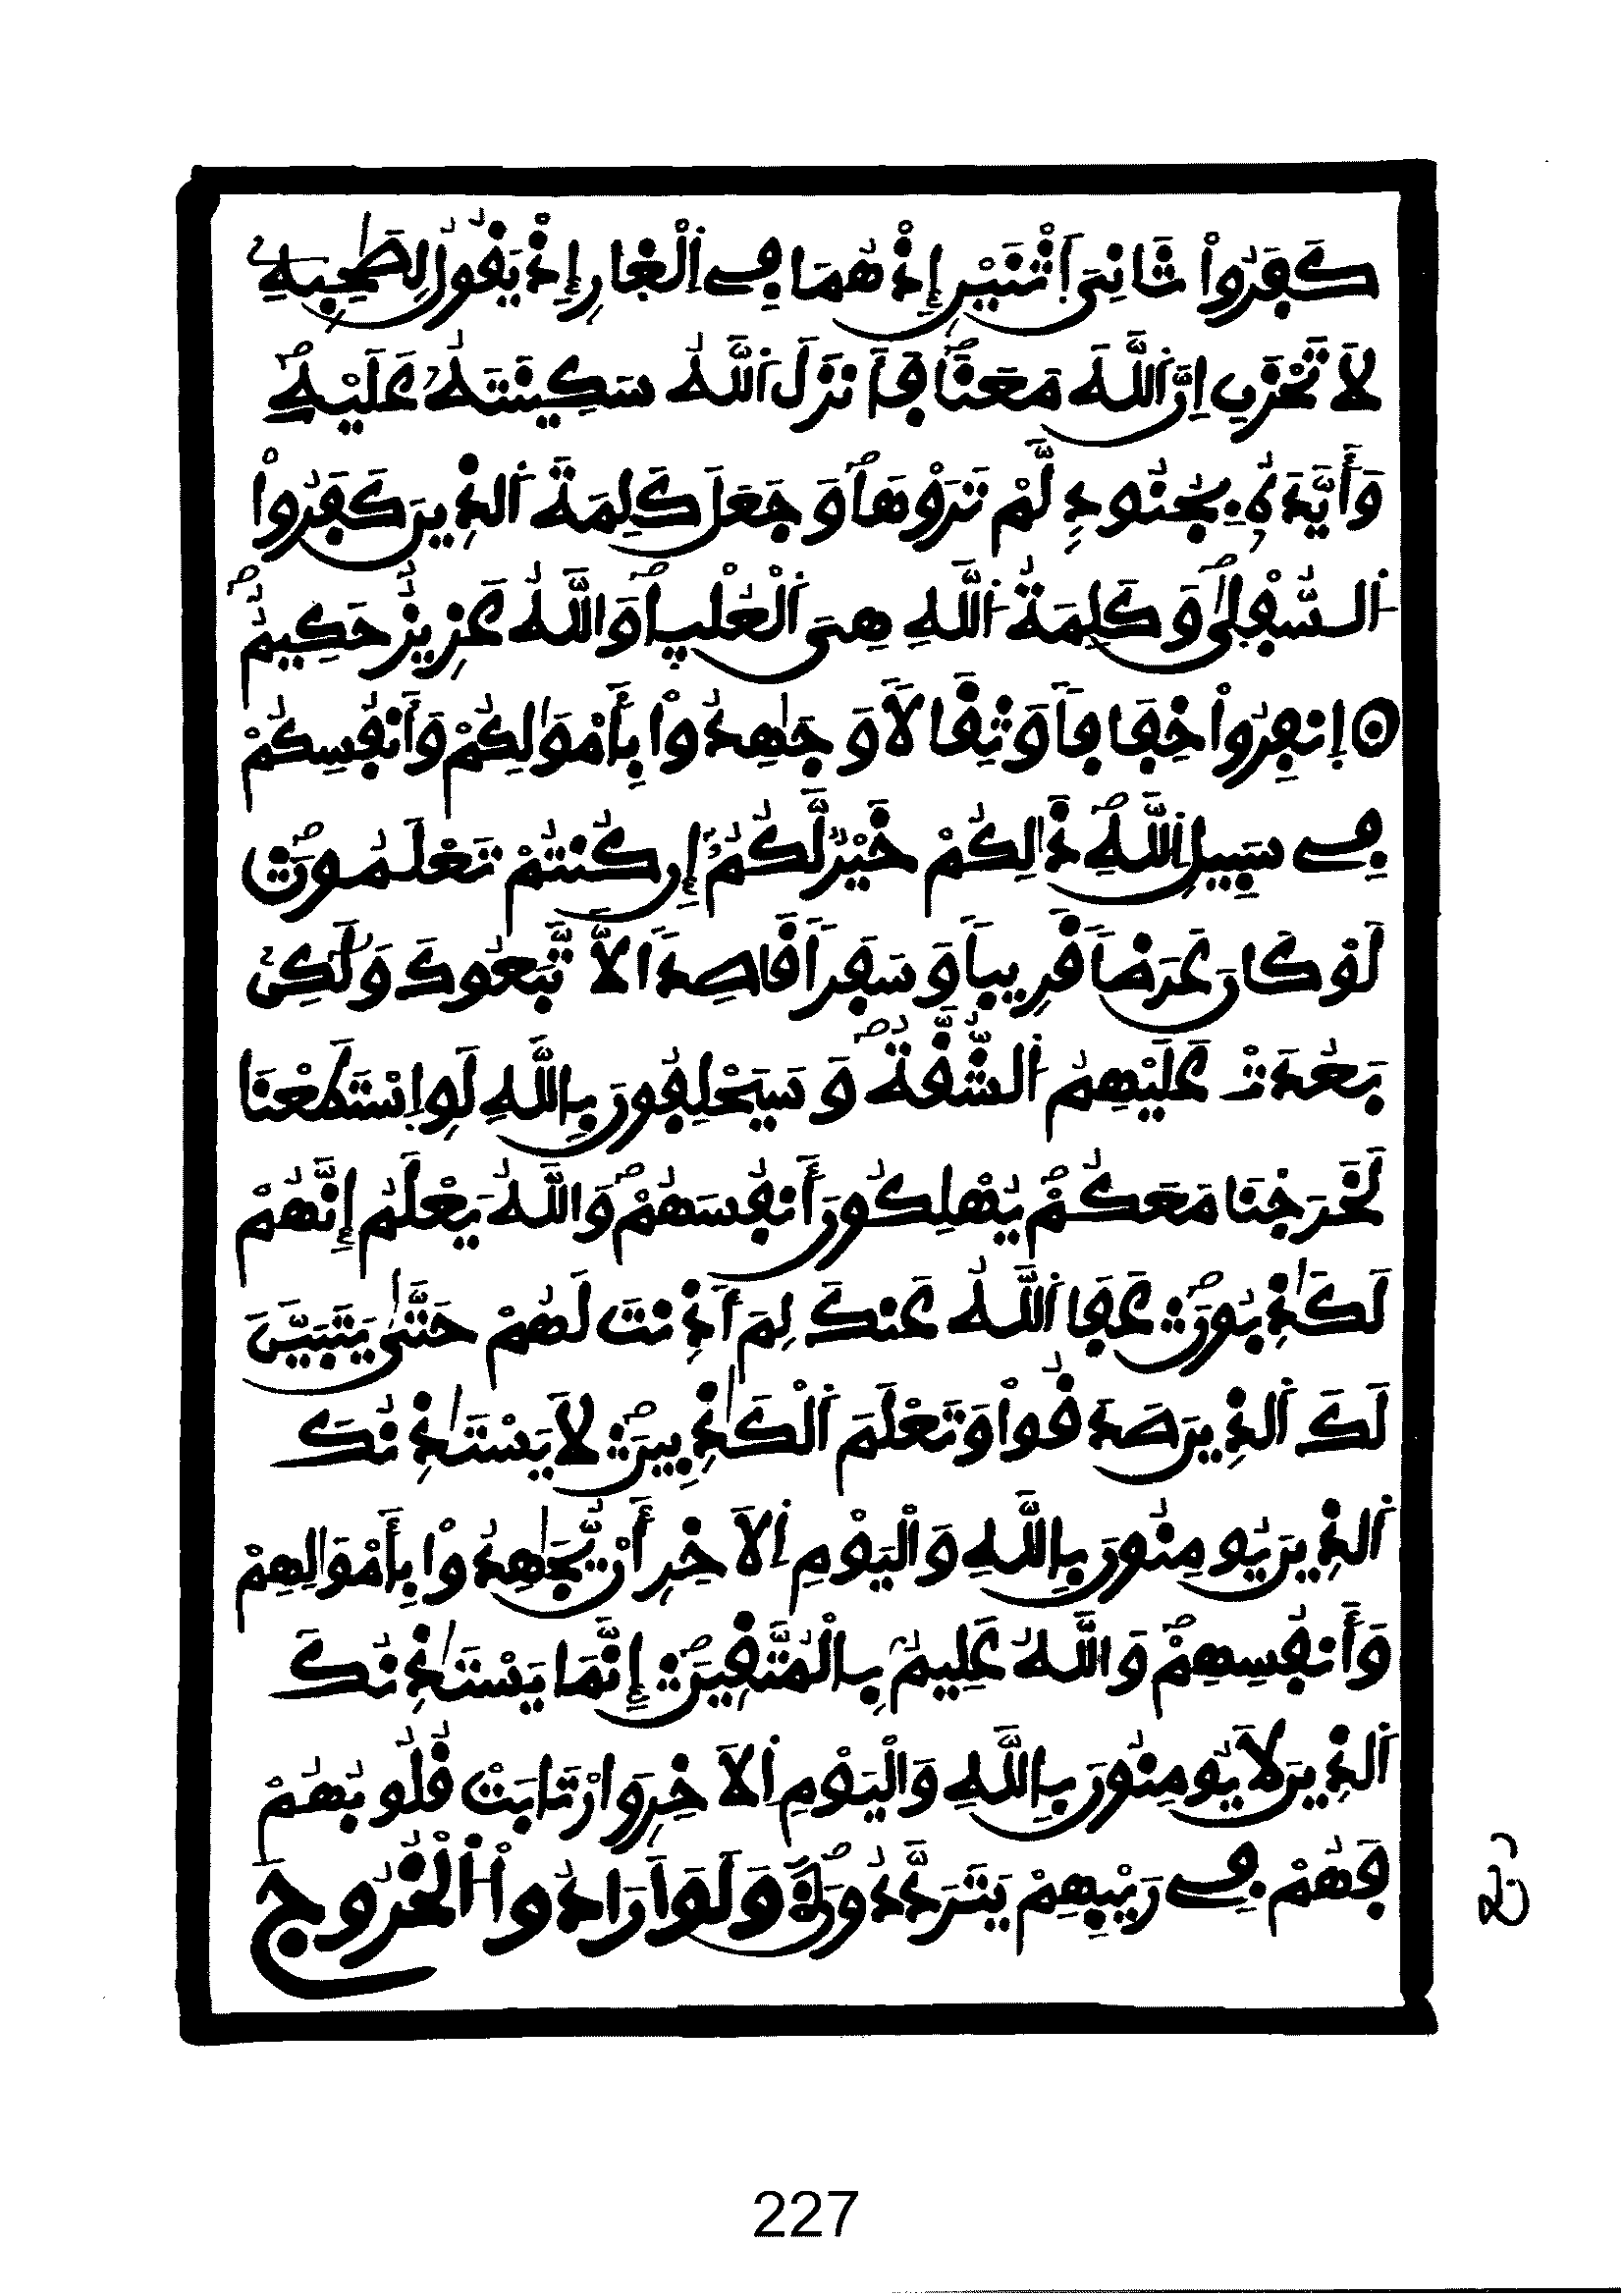 كَفَرُواْ ثَانِيَ اَثْنَيْنِ إِذْ هُمَا فِے اِ۬لْغ۪ارِ إِذْ يَقُولُ لِصَٰحِبِهِۦ
لَا تَحْزَنِ اِنَّ اَ۬للَّهَ مَعَنَا فَأَنزَلَ اَ۬للَّهُ سَكِينَتَهُۥ عَلَيْهِ
وَأَيَّدَهُۥ بِجُنُودٖ لَّمْ تَرَوْهَا وَجَعَلَ كَلِمَةَ اَ۬لذِينَ كَفَرُواْ
اُ۬لسُّفْل۪ىٰ وَكَلِمَةُ اُ۬للَّهِ هِيَ اَ۬لْعُلْيٜا وَاللَّهُ عَزِيزٌ حَكِيمٌ
۞ اِ۪نفِرُواْ خِفَافاٗ وَثِقَالاٗ وَجَٰهِدُواْ بِأَمْوَٰلِكُمْ وَأَنفُسِكُمْ
فِے سَبِيلِ اِ۬للَّهِ ذَٰلِكُمْ خَيْرٞ لَّكُمُۥٓ إِن كُنتُمْ تَعْلَمُونَ
لَوْ كَانَ عَرَضاٗ قَرِيباٗ وَسَفَراٗ قَاصِداٗ لَّاتَّبَعُوكَ وَلَٰكِنۢ
بَعُدَتْ عَلَيْهِمُ اُ۬لشُّقَّةُ وَسَيَحْلِفُونَ بِاللَّهِ لَوِ اِ۪سْتَطَعْنَا
لَخَرَجْنَا مَعَكُمْ يُهْلِكُونَ أَنفُسَهُمْ وَاللَّهُ يَعْلَمُ إِنَّهُمْ
لَكَٰذِبُونَ عَفَا اَ۬للَّهُ عَنكَ لِمَ أَذِنتَ لَهُمْ حَتَّىٰ يَتَبَيَّنَ
لَكَ اَ۬لذِينَ صَدَقُواْ وَتَعْلَمَ اَ۬لْكَٰذِبِينَ لَا يَسْتَٰذِنُكَ
اَ۬لذِينَ يُومِنُونَ بِاللَّهِ وَالْيَوْمِ اِ۬لَاخِرِ أَنْ يُّجَٰهِدُواْ بِأَمْوَٰلِهِمْ
وَأَنفُسِهِمْ وَاللَّهُ عَلِيمُۢ بِالْمُتَّقِينَ إِنَّمَا يَسْتَٰذِنُكَ
اَ۬لذِينَ لَا يُومِنُونَ بِاللَّهِ وَالْيَوْمِ اِ۬لَاخِرِ وَارْتَابَتْ قُلُوبُهُمْ
فَهُمْ فِے رَيْبِهِمْ يَتَرَدَّدُونَ وَلَوَ اَرَادُواْ اُ۬لْخُرُوجَ
227